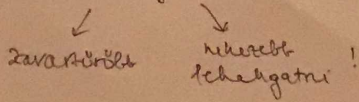 zavartűrőbb
nehezebb !
lehallgatni